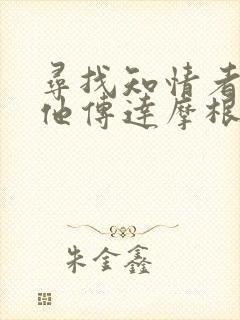 尋找知情者
他傳達摩根
朱金鑫